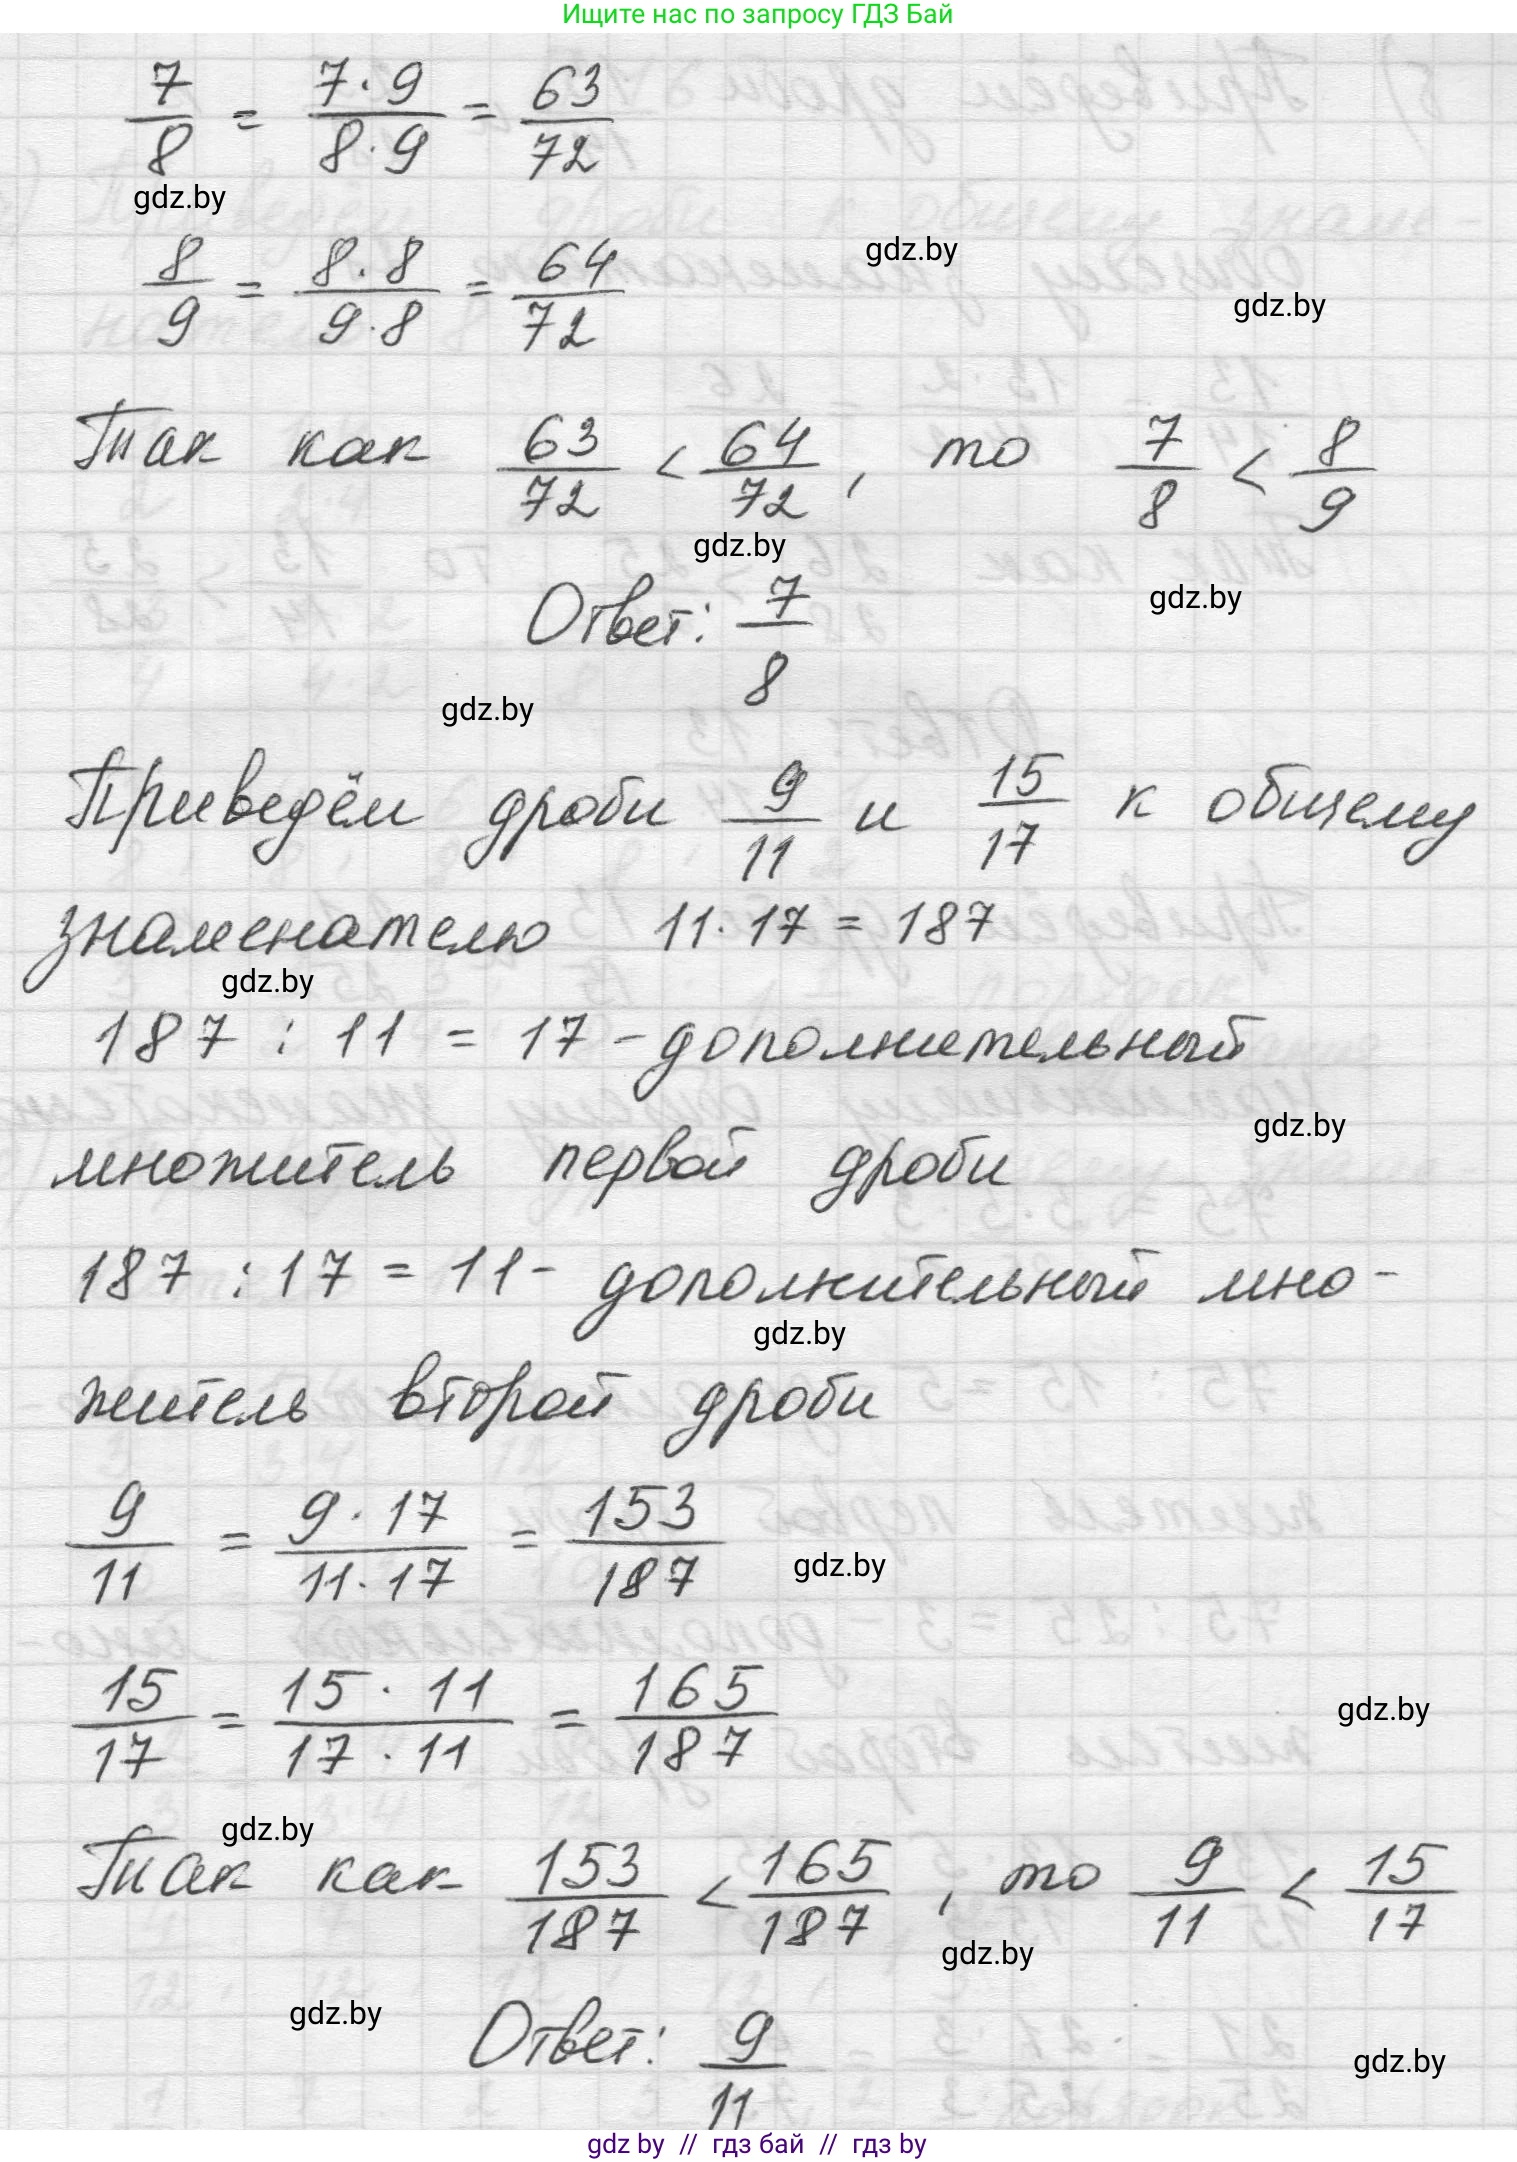 Ищите нас по запросу ГДЗ Бай
7/8 = 7·9/8·9 = 63/72
gdz.by
8/9 = 8·8/9·8 = 64/72
gdz.by
gdz.by
Так как 63/72 < 64/72, то 7/8 < 8/9
gdz.by
gdz.by
Ответ: 7/8
gdz.by
Приведём дроби 9/11 и 15/17 к общему
знаменателю 11·17 = 187
gdz.by
187 : 11 = 17 - дополнительный
gdz.by
множитель первой дроби
187 : 17 = 11 - дополнительный мно-
gdz.by
житель второй дроби
9/11 = 9·17/11·17 = 153/187
gdz.by
15/17 = 15·11/17·11 = 165/187
gdz.by
gdz.by
Так как 153/187 < 165/187, то 9/11 < 15/17
gdz.by
gdz.by
Ответ: 9/11
gdz.by
gdz by // гдз бай // гдз by